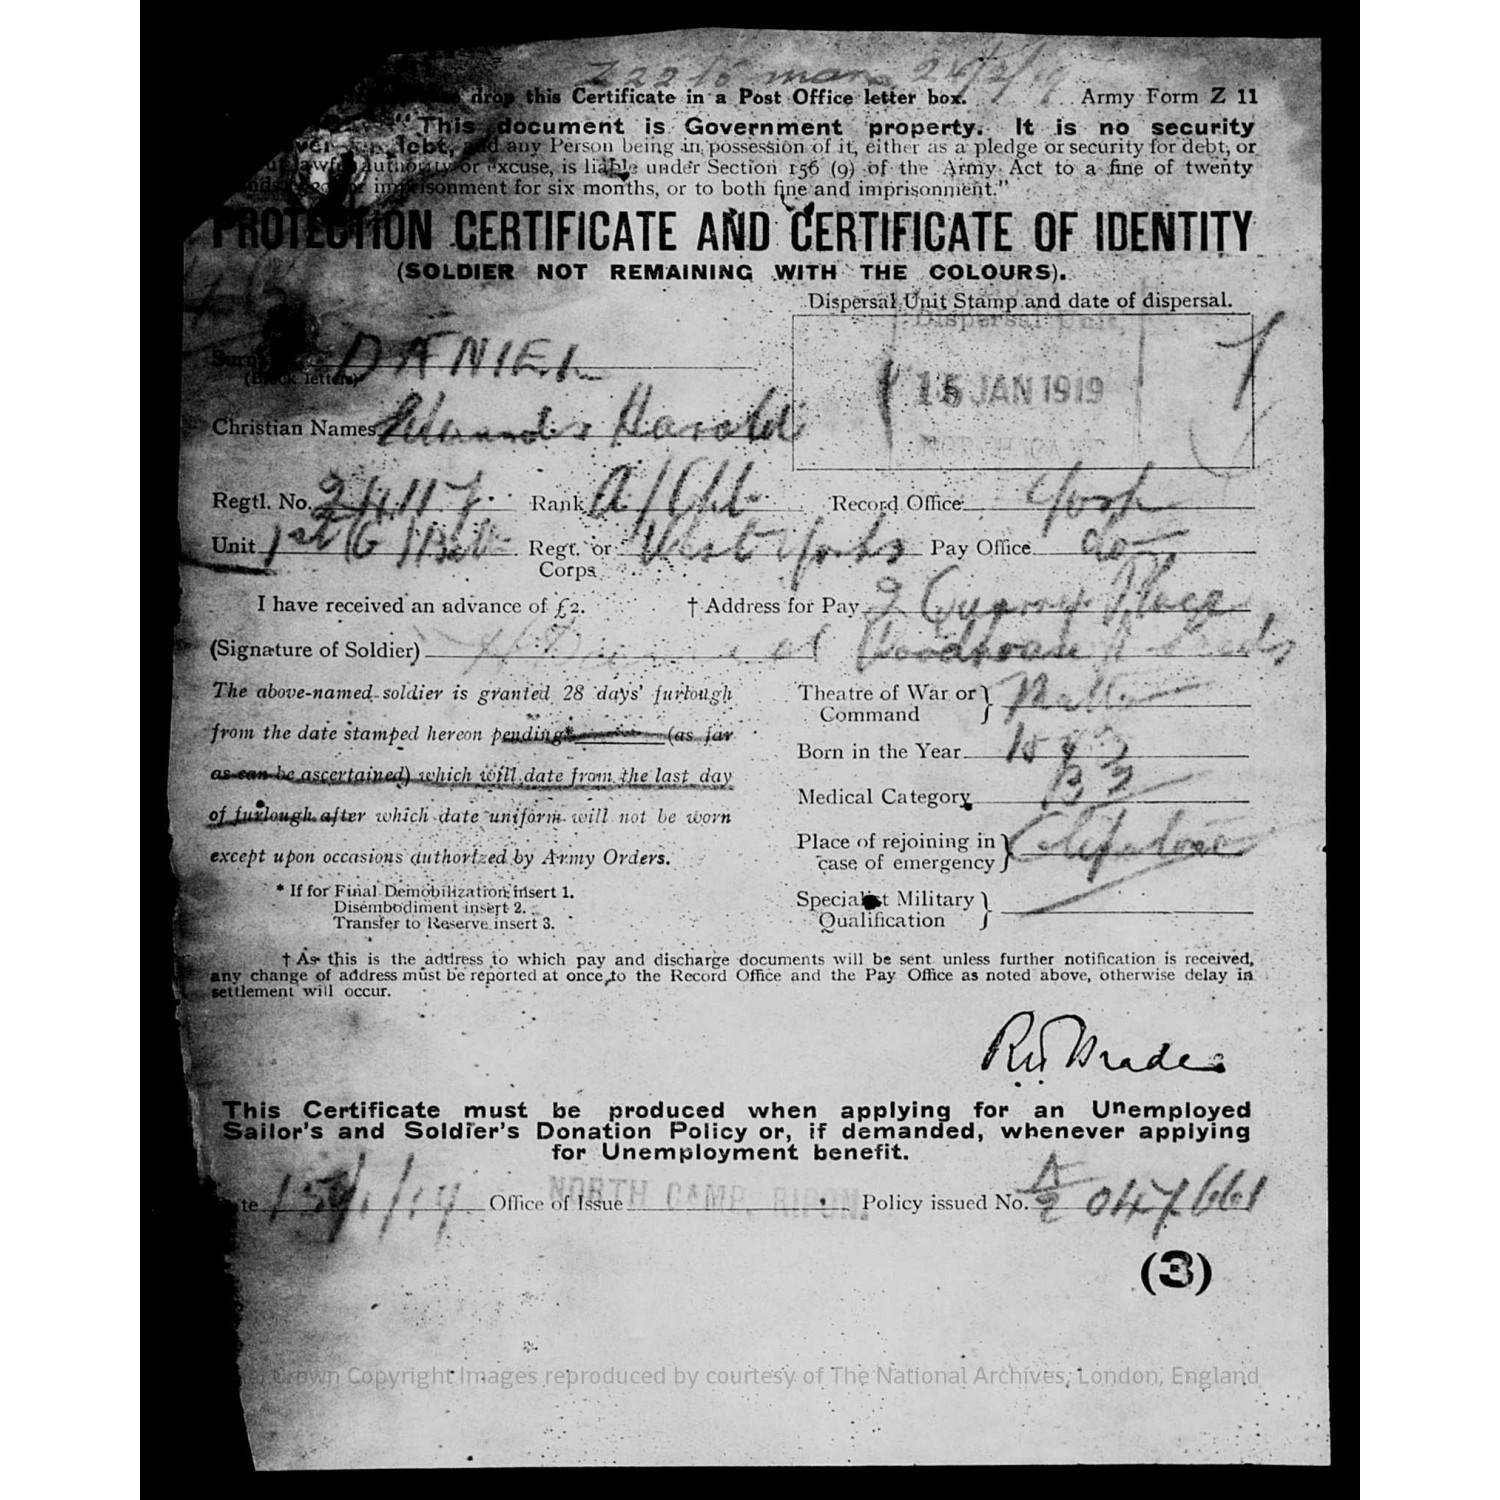 drop this Certificate in a Post Office letter box. Army Form Z 11
"This document is Government property. It is no security
debt, and any Person being in possession of it, either as a pledge or security for debt, or
lawful authority or excuse, is liable under Section 156 (9) of the Army Act to a fine of twenty
or imprisonment for six months, or to both fine and imprisonment."
PROTECTION CERTIFICATE AND CERTIFICATE OF IDENTITY
(SOLDIER NOT REMAINING WITH THE COLOURS).
Dispersal Unit Stamp and date of dispersal.
Dispersal Unit
15 JAN 1919
NORTH CAMP
DANIEL
(Block letters)
Christian Names Harold
Regtl. No. 24117 Rank A/Cpl. Record Office York
Unit 1st (G) Bn Regt. or West Yorks Pay Office do
Corps
I have received an advance of £2. † Address for Pay 9 Quarry Place
(Signature of Soldier) Woodhouse Leeds
The above-named soldier is granted 28 days' furlough
from the date stamped hereon pending* (as far
as can be ascertained) which will date from the last day
of furlough after which date uniform will not be worn
except upon occasions authorized by Army Orders.
* If for Final Demobilization insert 1.
Disembodiment insert 2.
Transfer to Reserve insert 3.
Theatre of War or
Command
Born in the Year
Medical Category B 2
Place of rejoining in
case of emergency Clipstone
Specialist Military
Qualification
† As this is the address to which pay and discharge documents will be sent unless further notification is received,
any change of address must be reported at once to the Record Office and the Pay Office as noted above, otherwise delay in
settlement will occur.
This Certificate must be produced when applying for an Unemployed
Sailor's and Soldier's Donation Policy or, if demanded, whenever applying
for Unemployment benefit.
15/1/19 Office of Issue NORTH CAMP, RIPON. Policy issued No. A/2 047661
(3)
Crown Copyright Images reproduced by courtesy of The National Archives, London, England